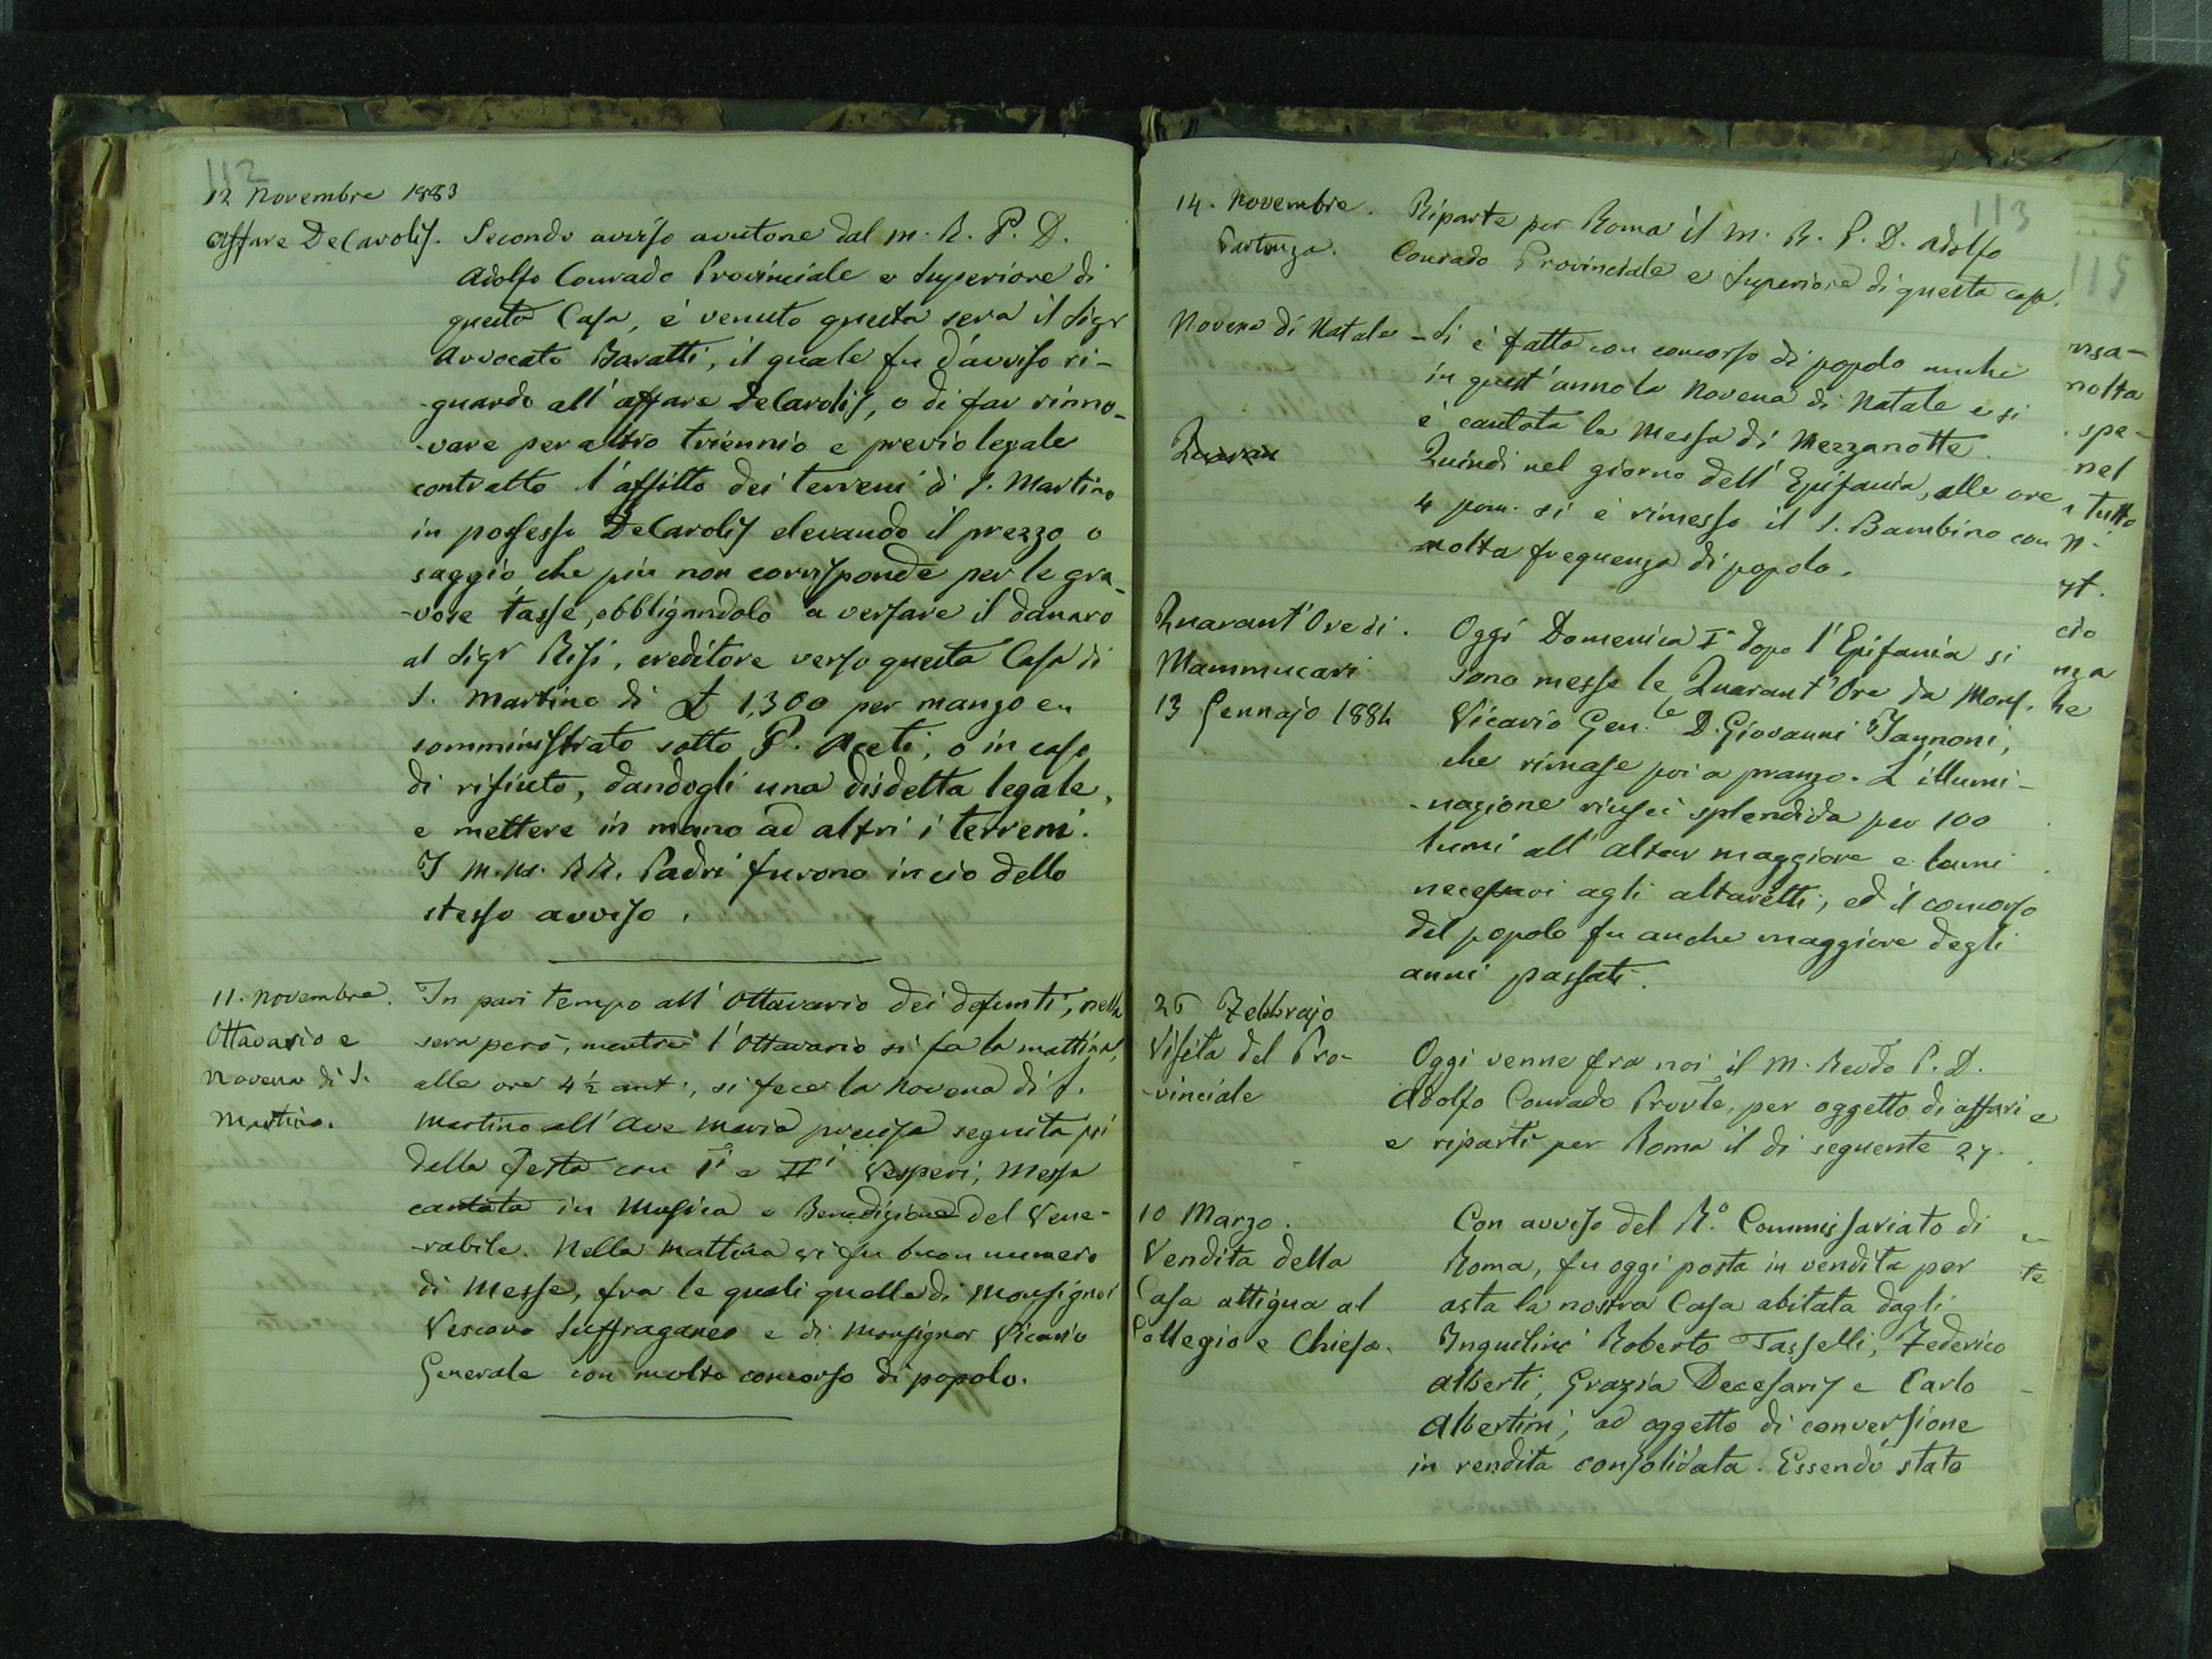 112
12 Novembre 1883
Affare DeCarolis. Secondo avviso avutone dal M. R. P. D.
Adolfo Conrado Provinciale e Superiore di
questa Casa, è venuto questa sera il Sigr
Avvocato Baratti, il quale fu d'avviso ri-
-guardo all'affare DeCarolis, o di far rinno-
-vare per altro triennio e previo legale
contratto l'affitto dei terreni di S. Martino
in possesso DeCarolis elevando il prezzo o
saggio, che più non corrisponde per le gra-
-vose tasse, obbligandolo a versare il danaro
al Sigr Risi, creditore verso questa Casa di
S. Martino di £ 1,300 per manzo cu
somministrato sotto P. Aceti, o in caso
di rifiuto, dandogli una disdetta legale,
e mettere in mano ad altri i terreni.
I M. M. RR. Padri furono in ciò dello
stesso avviso.
11. Novembre.
Ottavario e
Novena di S.
Martino.
In pari tempo all'Ottavario dei defunti, nella
sera però, mentre l'Ottavario si fa la mattina,
alle ore 4½ ant., si fece la Novena di S.
Martino all'Ave Maria precisa seguita poi
della Festa con Ii e IIi Vesperi, Messa
cantata in Musica e Benedizione del Vene-
-rabile. Nella mattina vi fu buon numero
di Messe, fra le quali quella di Monsignor
Vescovo Suffraganeo e di Monsignor Vicario
Generale con molto concorso di popolo.
113
14. Novembre.
Partenza.
Riparte per Roma il M. R. P. D. Adolfo
Conrado Provinciale e Superiore di questa casa.
Novena di Natale - Si è fatta con concorso di popolo anche
in quest'anno la Novena di Natale e si
è cantata la Messa di Mezzanotte.
Quaran
Quindi nel giorno dell'Epifania, alle ore
4 pom. si è rimesso il S. Bambino con
molta frequenza di popolo.
Quarant'Ore di.
Mammucari
13 Gennajo 1884
Oggi Domenica Iª dopo l'Epifania si
sono messe le Quarant'Ore da Mons.
Vicario Gen.le D. Giovanni Iannoni,
che rimase poi a pranzo. L'illumi-
-nazione riuscì splendida per 100
lumi all'altar maggiore e lumi
necessari agli altaretti, ed il concorso
del popolo fu anche maggiore degli
anni passati.
26 Febbrajo
Visita del Pro-
-vinciale
Oggi venne fra noi il M. Revdo P. D.
Adolfo Conrado Provle, per oggetto di affari
e ripartì per Roma il dì seguente 27.
10 Marzo.
Vendita della
Casa attigua al
Collegio e Chiesa.
Con avviso del R.º Commissariato di
Roma, fu oggi posta in vendita per
asta la nostra Casa abitata dagli
Inquilini Roberto Tasselli, Federico
Alberti, Grazia Decesaris e Carlo
Albertini, ad oggetto di conversione
in rendita consolidata. Essendo stato
115
visa-
molta
spe-
nel
tutto
nza
he
te